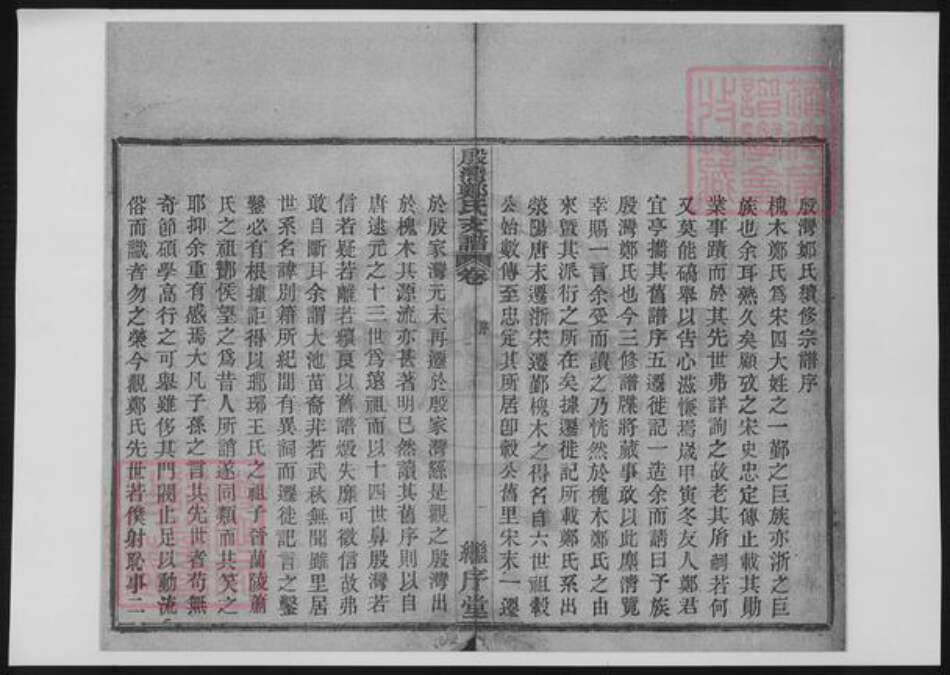 殷灣鄭氏續修宗譜序
槐木鄭氏爲宋四大姓之一鄞之巨族亦浙之巨
族也余耳熟久矣顧攷之宋史忠定傳止載其勛
業事蹟而於其先世弗詳詢之故老其胄嗣若何
又莫能碻舉以吿心滋慊焉歲甲寅冬友人鄭君
宜亭攜其舊譜序五遷徙記一造余而請曰予族
殷灣鄭氏也今三修譜牒將蕆事敢以此塵淸覽
幸賜一言余受而讀之乃恍然於槐木鄭氏之由
來曁其派衍之所在矣據遷徙記所載鄭氏系出
滎陽唐末遷浙宋遷鄞槐木之得名自六世祖穀
公始數傳至忠定其所居卽穀公舊里宋末一遷
殷灣鄭氏支譜
卷
序
一
繼序堂
於殷家灣元末再遷於殷家灣繇是觀之殷灣出
於槐木其源流亦甚著明已然讀其舊序則以自
唐逮元之十三世爲遠祖而以十四世鼻殷灣若
信若疑若離若續良以舊譜燬失靡可徵信故弗
敢自斷耳余謂大池苗裔非若武秋無聞雖里居
世系名諱別籍所紀間有異詞而遷徙記言之鑿
鑿必有根據詎得以瑯琊王氏之祖子晉蘭陵蕭
氏之祖酇侯望之爲昔人所誚遂同類而共笑之
耶抑余重有感焉大凡子孫之言其先世者苟無
奇節碩學高行之可舉雖侈其門閥止足以動流
俗而識者勿之榮今觀鄭氏先世若僕射恥事二